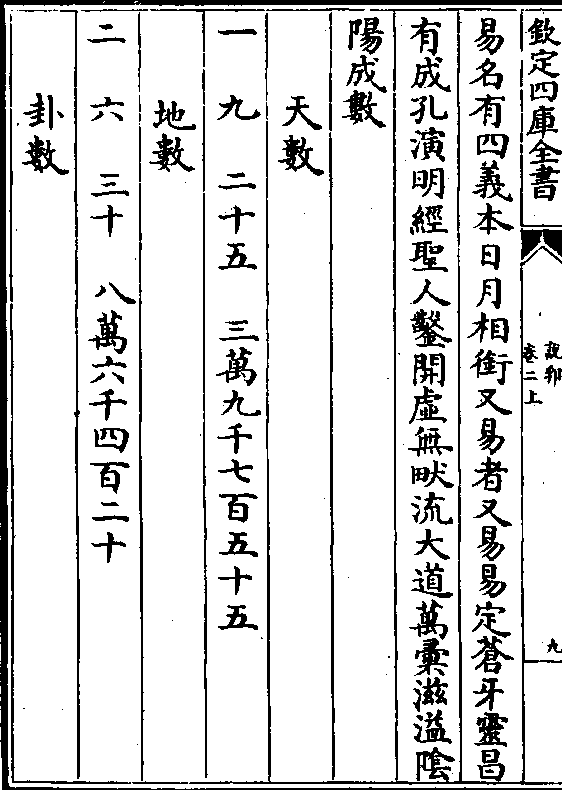 欽定四庫全書
說郛
卷二上
九
易名有四義本日月相銜又易者又易易定蒼牙靈昌
有成孔演明經聖人鑿開虛無畎流大道萬彚滋溢陰
陽成數
天數
一 九 二十五 三萬九千七百五十五
地數
二 六 三十 八萬六千四百二十
卦數